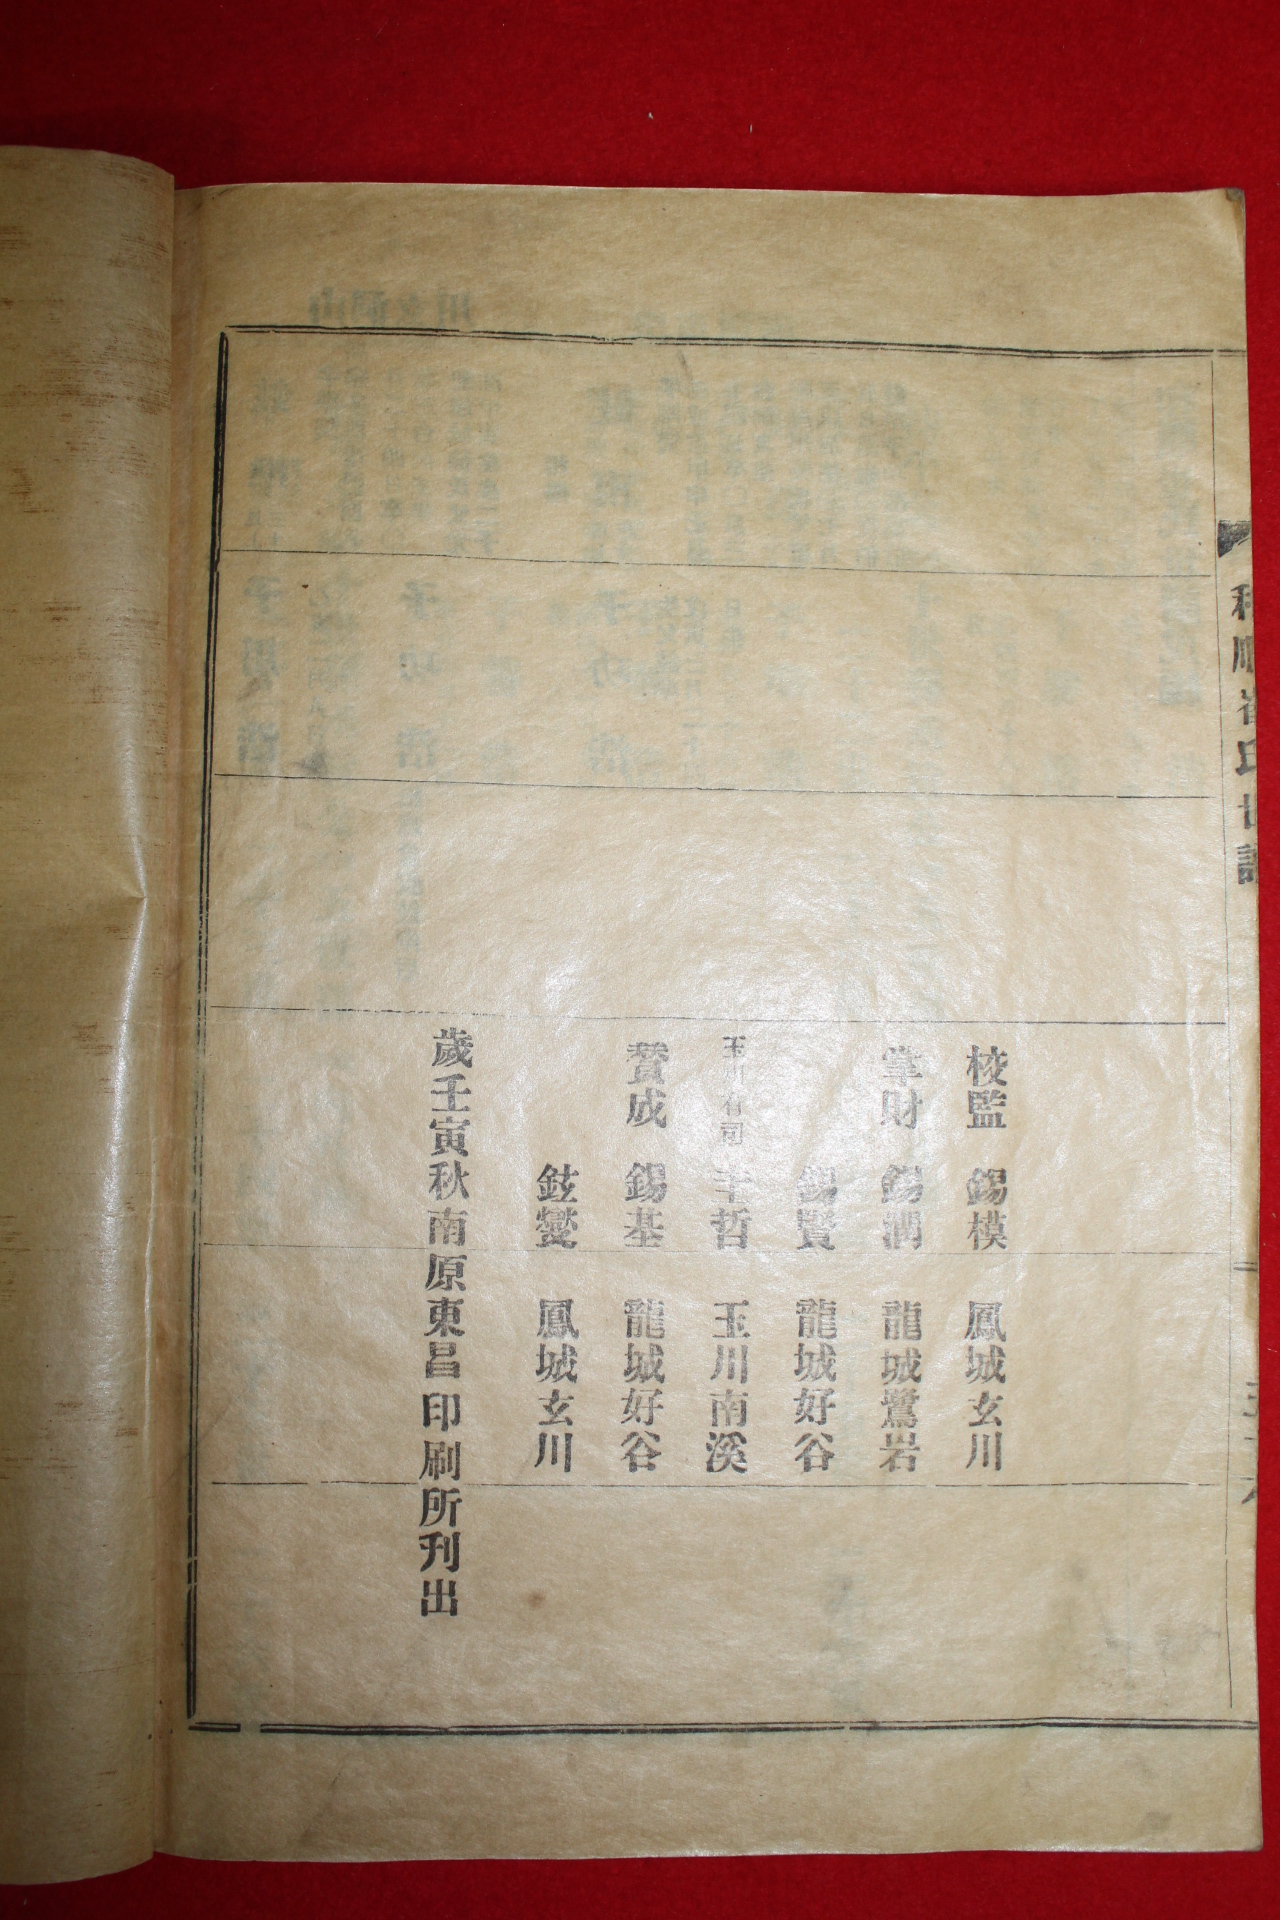 順崔氏世譜
校監 錫模 鳳城玄川
掌財 錫潤 龍城鷺岩
錫賢 龍城好谷
玉川有司 圭哲 玉川南溪
賛成 錫基 龍城好谷
鉉燮 鳳城玄川
歲壬寅秋南原東昌印刷所刊出